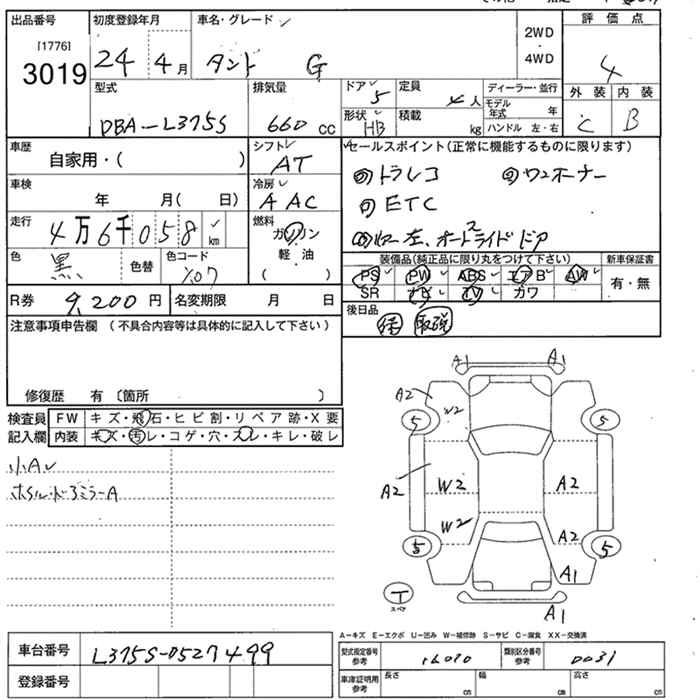 出品番号 初度登録年月 車名・グレード 評価点
[1776]
3019 24 4月 タント G 2WD・4WD 4
型式 排気量 ドア 5 定員 4人 ディーラー・並行 外装 内装
DBA-L375S 660cc 形状 HB 積載 kg モデル年式 年 ハンドル 左・右 C B
車歴 自家用・( ) シフト AT
セールスポイント(正常に機能するものに限ります)
車検 年 月( 日) 冷房 AAC
◎ナビTV
◎ETC
走行 4万6千058km 燃料 ガソリン 軽油 ( )
色 黒 色替 色コード X07
装備品(純正品に限り丸をつけて下さい) 新車保証書
PS PW ABS エアB AW 有・無
SR ナビ TV カワ
R券 9,200円 名変期限 月 日
後日品 取説
注意事項申告欄(不具合内容等は具体的に記入して下さい)
修復歴 有〔箇所 〕
検査員 FW キズ・飛石・ヒビ割・リペア跡・X要
記入欄 内装 キズ・汚レ・コゲ・穴・スレ・キレ・破レ
小A
ドアミラーA
A1 A1
A2 W2
5 5
A2 W2 A2
W2 A2
5 5
A1
T
スペア
A1
A-キズ E-エクボ U-凹み W-補修跡 S-サビ C-腐食 XX-交換済
車台番号 L375S-0527499 型式指定番号 参考 16070 類別区分番号 参考 0031
登録番号 車庫証明用 参考 長さ cm 幅 cm 高さ cm